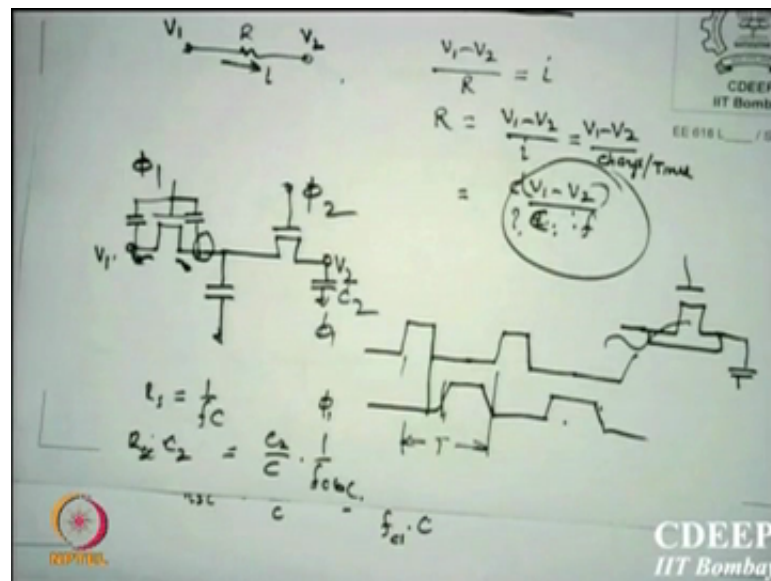 V1 R V2
i
V1-V2 / R = i
R = V1-V2 / i = V1-V2 / Charge/Time
= (V1-V2)
? C : f
CDEEP
IIT Bomba
EE 618 L / S
ϕ1
ϕ2
V1
V2
C2
R = 1/fC
C2 = C2/C · 1/f
ϕ1
T
C = f · C
NPTEL
CDEEP
IIT Bombay